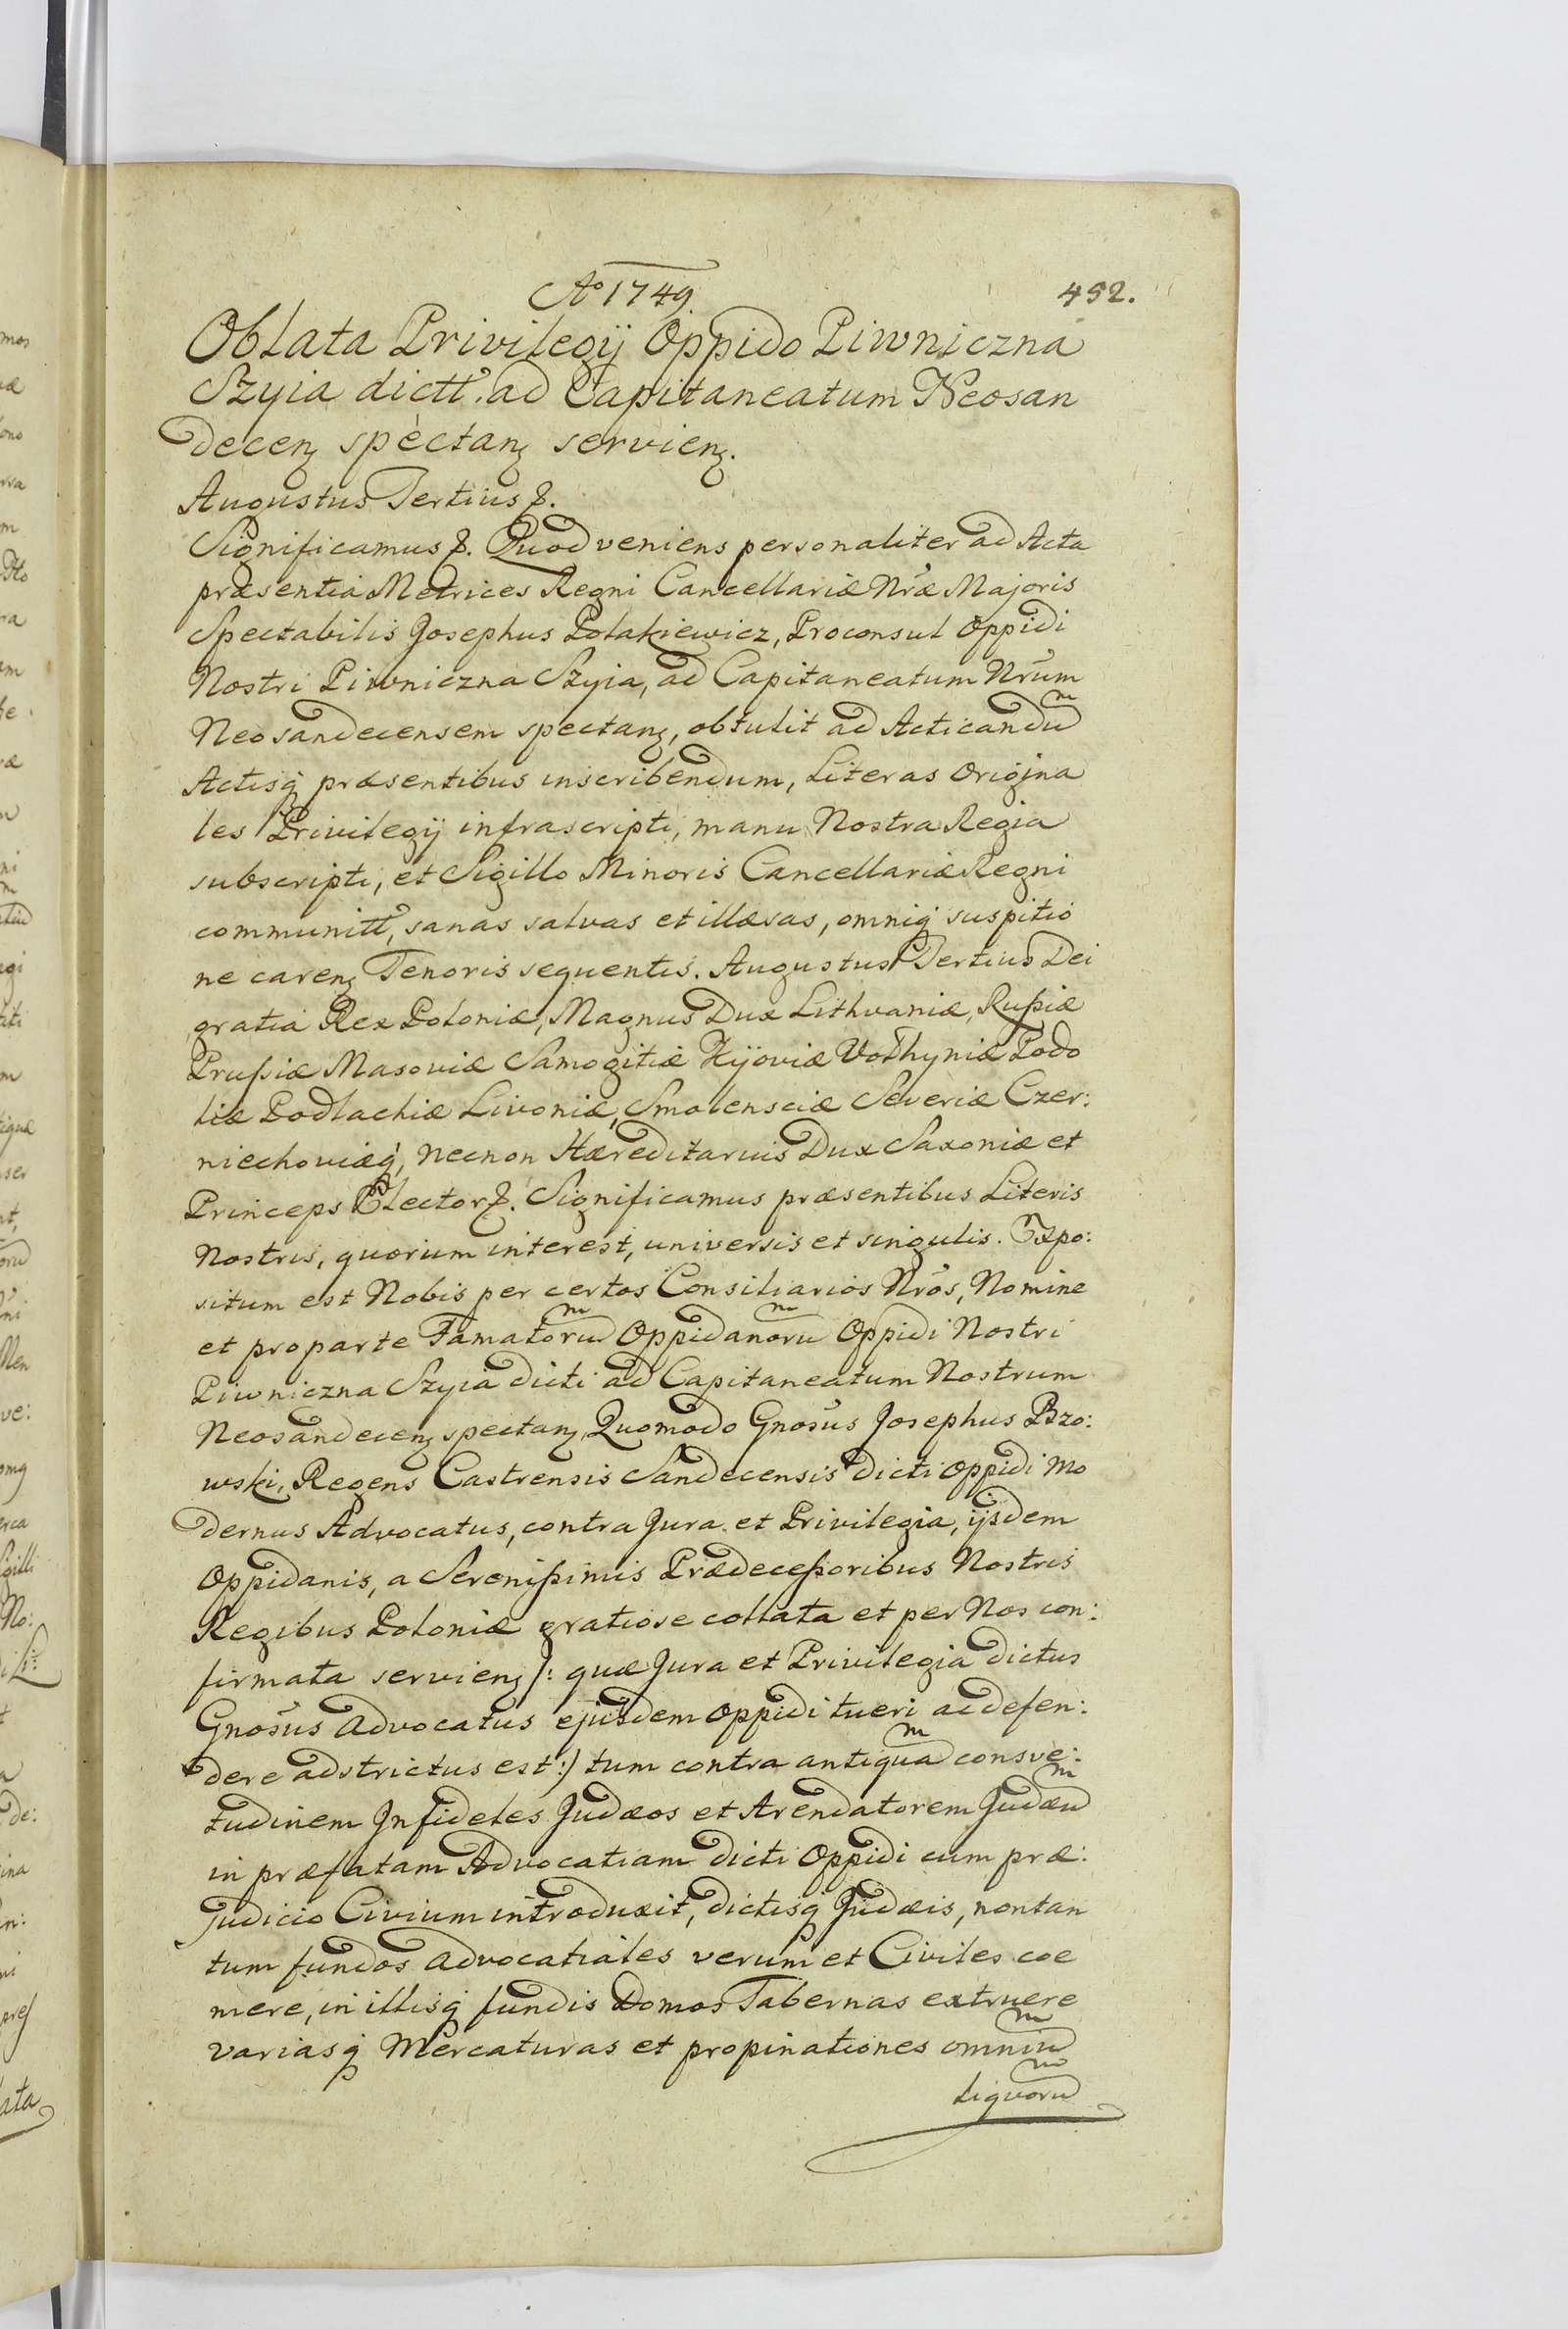 Aº 1749. 452.
Oblata Privilegij Oppido Piwniczna
Szyia dictt. ad Capitaneatum Neosan
decenz spectanz servienz.
Augustus Tertius &.
Significamus &. Quod veniens personaliter ad Acta
præsentia Metrices Regni Cancellariæ Nræ Majoris
Spectabilis Josephus Polakiewicz, Proconsul Oppidi
Nostri Piwniczna Szyia, ad Capitaneatum Nrum
Neosandecensem spectanz, obtulit ad Acticandum
Actisq præsentibus inscribendum, Literas Origina
les Privilegij infrascripti, manu Nostra Regia
subscripti, et Sigillo Minoris Cancellariæ Regni
communitt, sanas salvas et illæsas, omniq suspitio
ne carenz Tenoris sequentis. Augustus Tertius Dei
gratia Rex Poloniæ, Magnus Dux Lithvaniæ, Rußiæ
Prußiæ Masoviæ Samogitiæ Kijoviæ Volhyniæ Podo
liæ Podlachiæ Livoniæ, Smolensciæ Severiæ Czer:
niechoviæq, necnon Hæreditarius Dux Saxoniæ et
Princeps Elector &. Significamus præsentibus Literis
Nostris, quorum interest, universis et singulis. Expo:
situm est Nobis per certos Consiliarios Nros, Nomine
et pro parte Famatorum Oppidanorum Oppidi Nostri
Piwniczna Szyia dicti ad Capitaneatum Nostrum
Neosandecenz spectanz, Quomodo Gnosus Josephus Bzo:
wski, Regens Castrensis Sandecensis dicti Oppidi Mo
dernus Advocatus, contra Jura et Privilegia, ijsdem
Oppidanis, a Serenißimis Prædeceßoribus Nostris
Regibus Poloniæ gratiose collata et per Nos con:
firmata servienz /: quæ Jura et Privilegia dictus
Gnosus Advocatus ejusdem Oppidi tueri ac defen:
dere adstrictus est :/ tum contra antiquam consve:
tudinem Infideles Judæos et Arendatorem Judæum
in præfatam Advocatiam dicti Oppidi cum præ:
judicio Civium introduxit, dictisq Judæis, non tan
tum fundos advocatiales verum et Civiles coe
mere, in illisq fundis Domos Tabernas extruere
variasq Mercaturas et propinationes omnium
liquorum